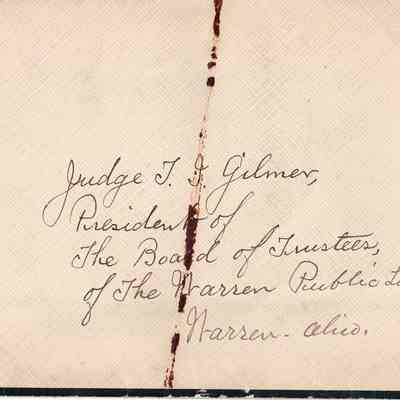 Judge T. I. Gilmer,
President of
The Board of Trustees,
of The Warren Public Li
Warren - Ohio.